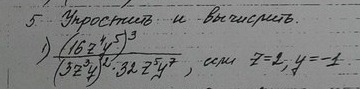 5. Упростить и вычислить.
1) (16z⁴y⁵)³ / (3z³y)² · 32z⁵y⁷, или z=2, y=-1